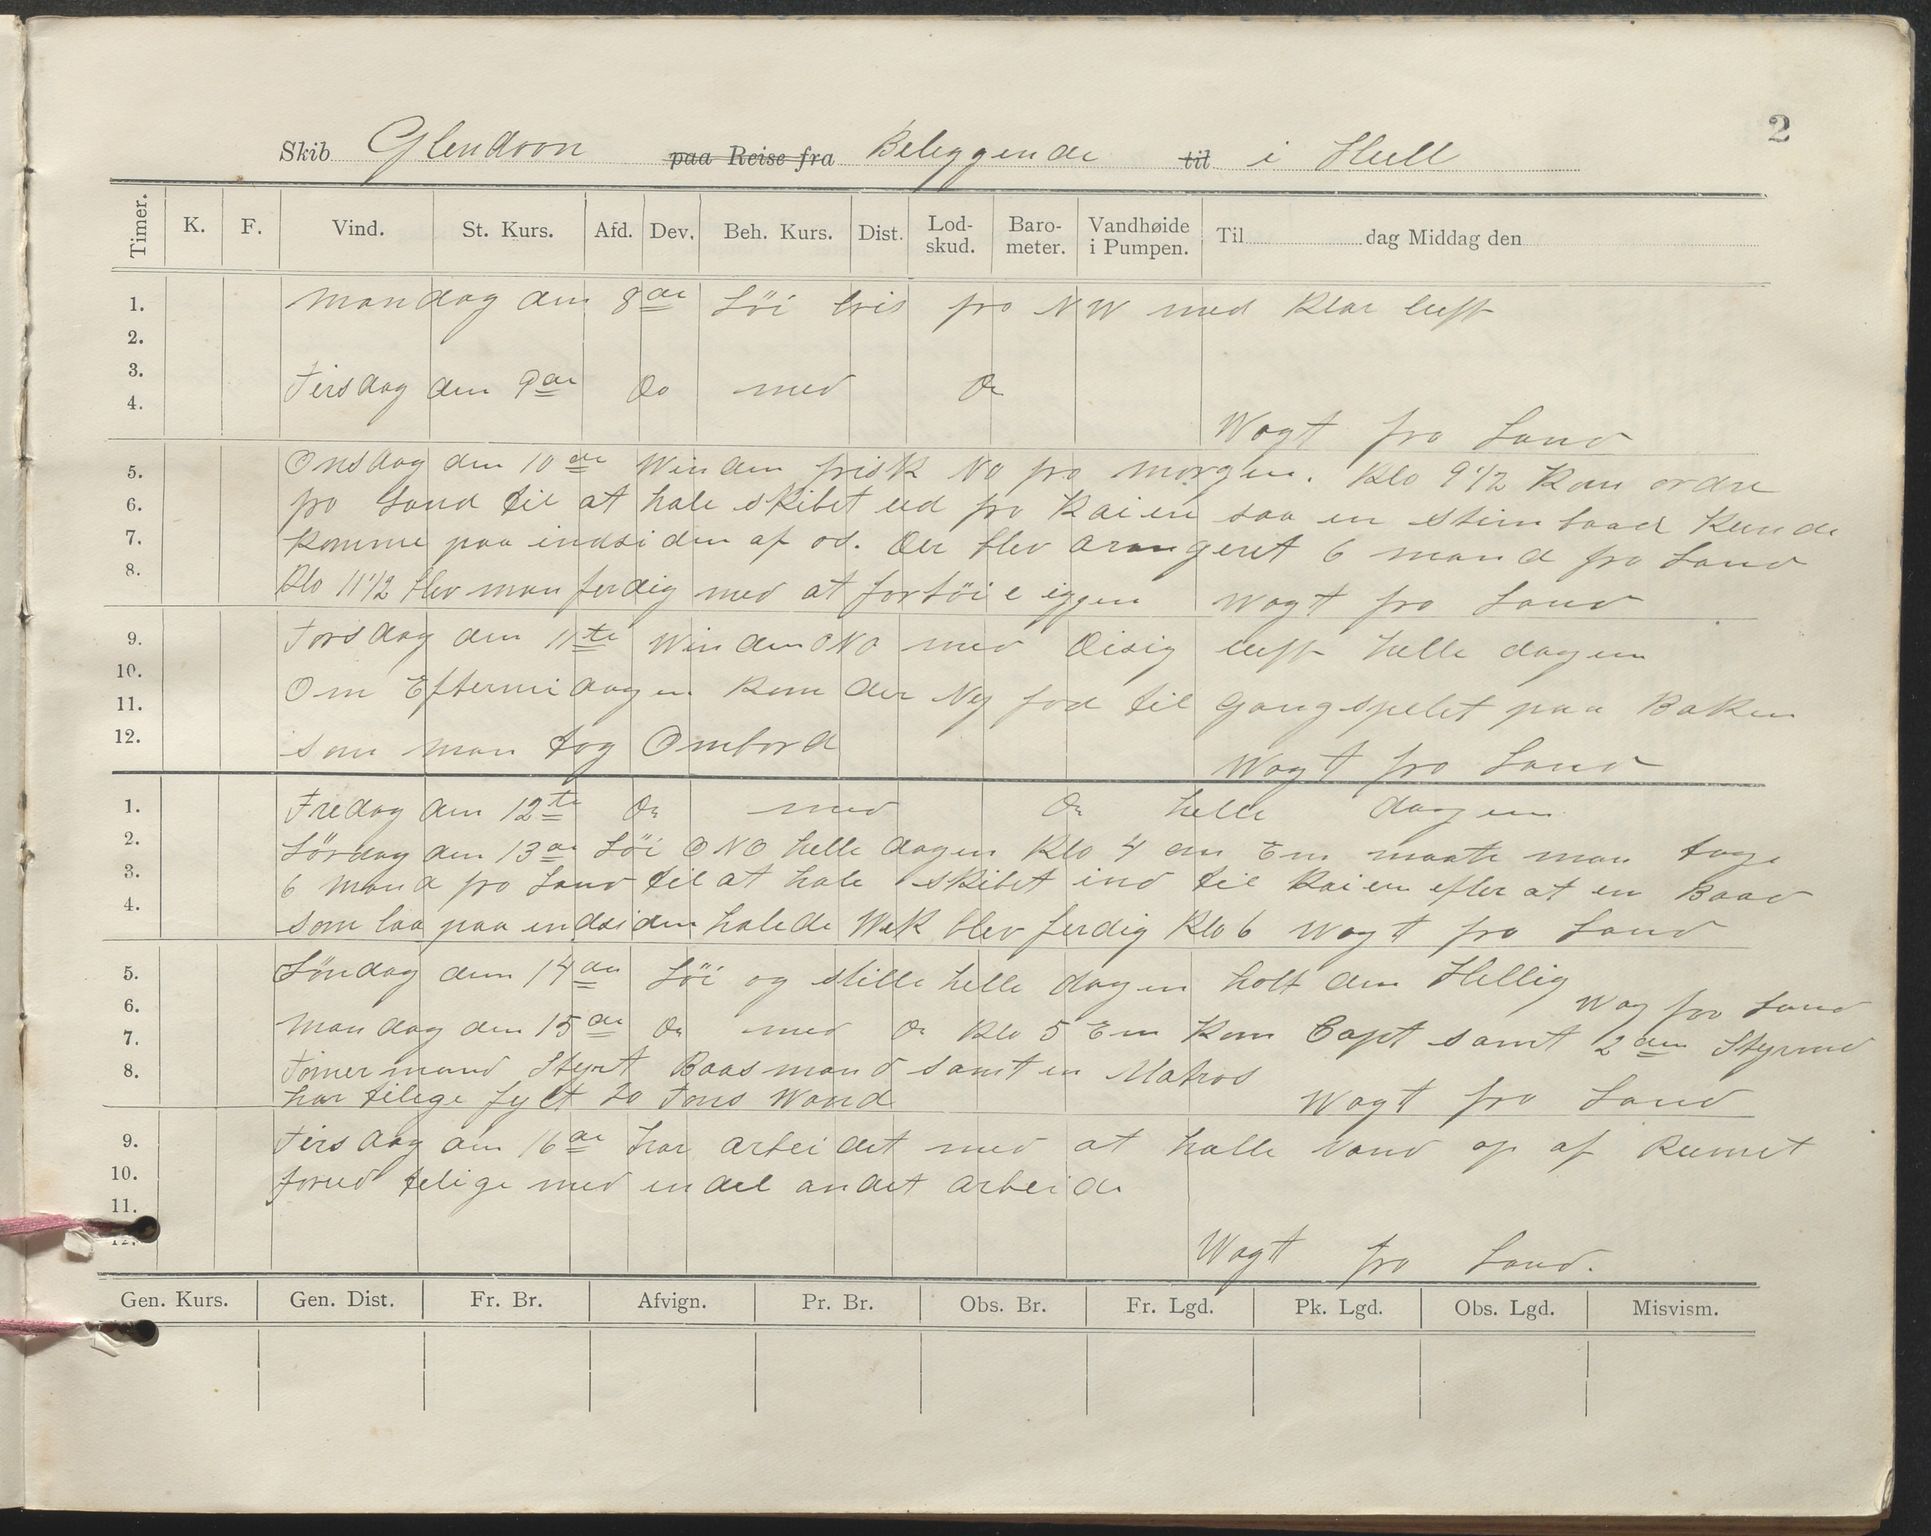 2
Skib Glendoon paa Reise fra Beliggende til i Hull
Timer. K. F. Vind. St. Kurs. Afd. Dev. Beh. Kurs. Dist. Lod-skud. Baro-meter. Vandhøide i Pumpen. Til dag Middag den
1. Mandag den 8de Löi bris fra NW med Klar luft
2.
3. Tirsdag den 9de Do med Do
4.
Wagt fra Land
5. Onsdag den 10de Winden frisk NO fra morgen. Klo 9 1/2 Kom ordre
6. fra Land til at hale skibet ud fra Kaien saa en stimbaad Kunde
7. Komme paa indsiden af os. Der blev arangeret 6 mand fra Land
8. Klo 11 1/2 blev man ferdig med at fortöie iggen Wagt fra Land
9. Torsdag den 11te Winden ONO med Disig luft helle dagen
10. Om Eftermidagen Kom der Ny fod til Gangspelet paa Baken
11.
12. som man tog Ombord
Wagt fra Land
1. Fredag den 12te Do med Do helle dagen
2. Lördag den 13de Löi ONO helle dagen Klo 4 em Em maate man tage
3. 6 mand fra Land til at hale skibet ind til Kaien efter at en Baad
4. som laa paa indsiden halede Wek blev ferdig Klo 6 Wagt fra Land
5. Söndag den 14de Löi og stille helle dagen holt den Hellig
6. Wag fra Land
7. Mandag den 15de Do med Do Klo 5 Em Kom Capt samt 2den Styrmd
8. Tömermand Stuet Baasmand samt en Matros
har tilige fylt 20 Tons Wand Wagt fra Land
9. Tirsdag den 16de har arbeidet med at halle Vand op af Rumet
10. forud telige med endel andet arbeide
11.
12.
Wagt fra Land.
Gen. Kurs. Gen. Dist. Fr. Br. Afvign. Pr. Br. Obs. Br. Fr. Lgd. Pk. Lgd. Obs. Lgd. Misvism.